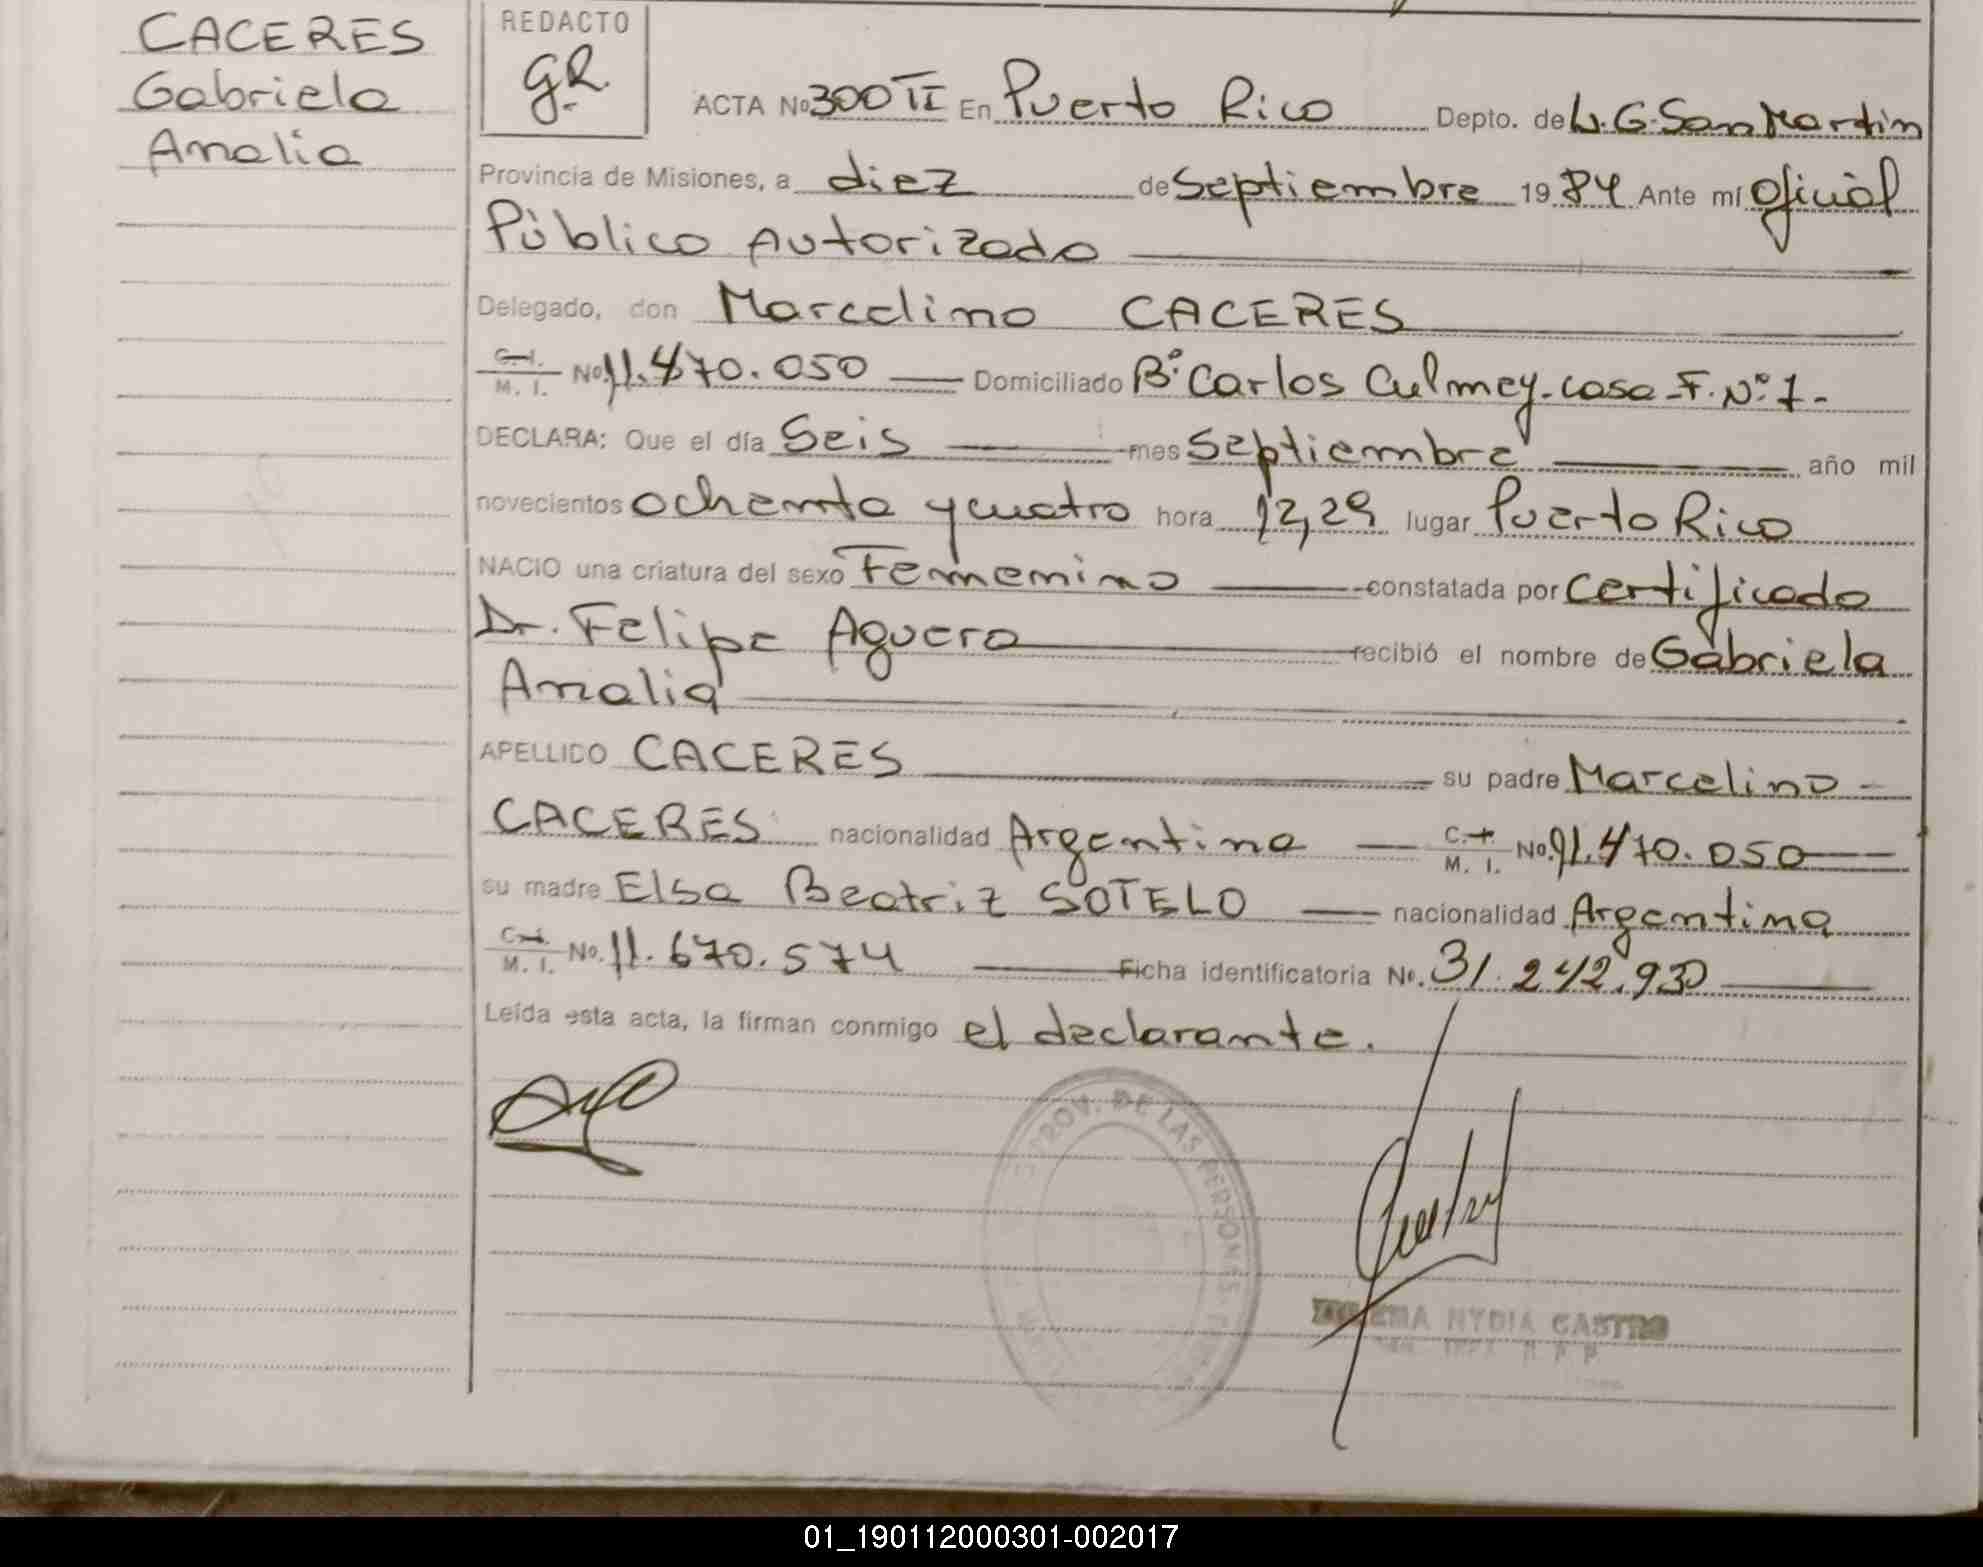 CACERES
Gabriela
Analia
REDACTO
gR.
ACTA No 300 TI En Puerto Rico Depto. de L.G. San Martin
Provincia de Misiones, a diez de Septiembre 1984 Ante mí Oficial
Público Autorizado
Delegado, don Marcelino CACERES
C.I. M. I. No. 11.470.050 Domiciliado B° Carlos Culmey-casa-F.N°1-
DECLARA: Que el día Seis mes Septiembre año mil
novecientos ochenta y cuatro hora 12,29 lugar Puerto Rico
NACIO una criatura del sexo Femenino constatada por certificado
Dr. Felipe Aguero recibió el nombre de Gabriela
Analia
APELLIDO CACERES su padre Marcelino -
CACERES nacionalidad Argentina C.I. M. I. No. 11.470.050
su madre Elsa Beatriz SOTELO nacionalidad Argentina
C.I. M. I. No. 11.670.574 Ficha identificatoria No. 31.242.930
Leída esta acta, la firman conmigo el declarante.
PROV. DE LAS PERSONAS
NYDIA CASTRO
01_190112000301-002017